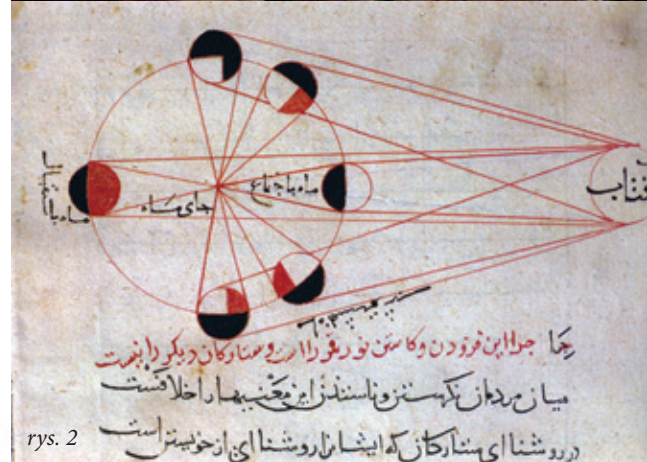 فتاب
ماه باجتماع
جای ماه
ماه باستقبال
جرا این فزودن وکاستن نور قمر راست وستارکان دیکر را نیست
میان مردمان این معنیها را خلافست
در روشنای ستارکان که ایشانرا روشنای از خویشتن است
rys. 2